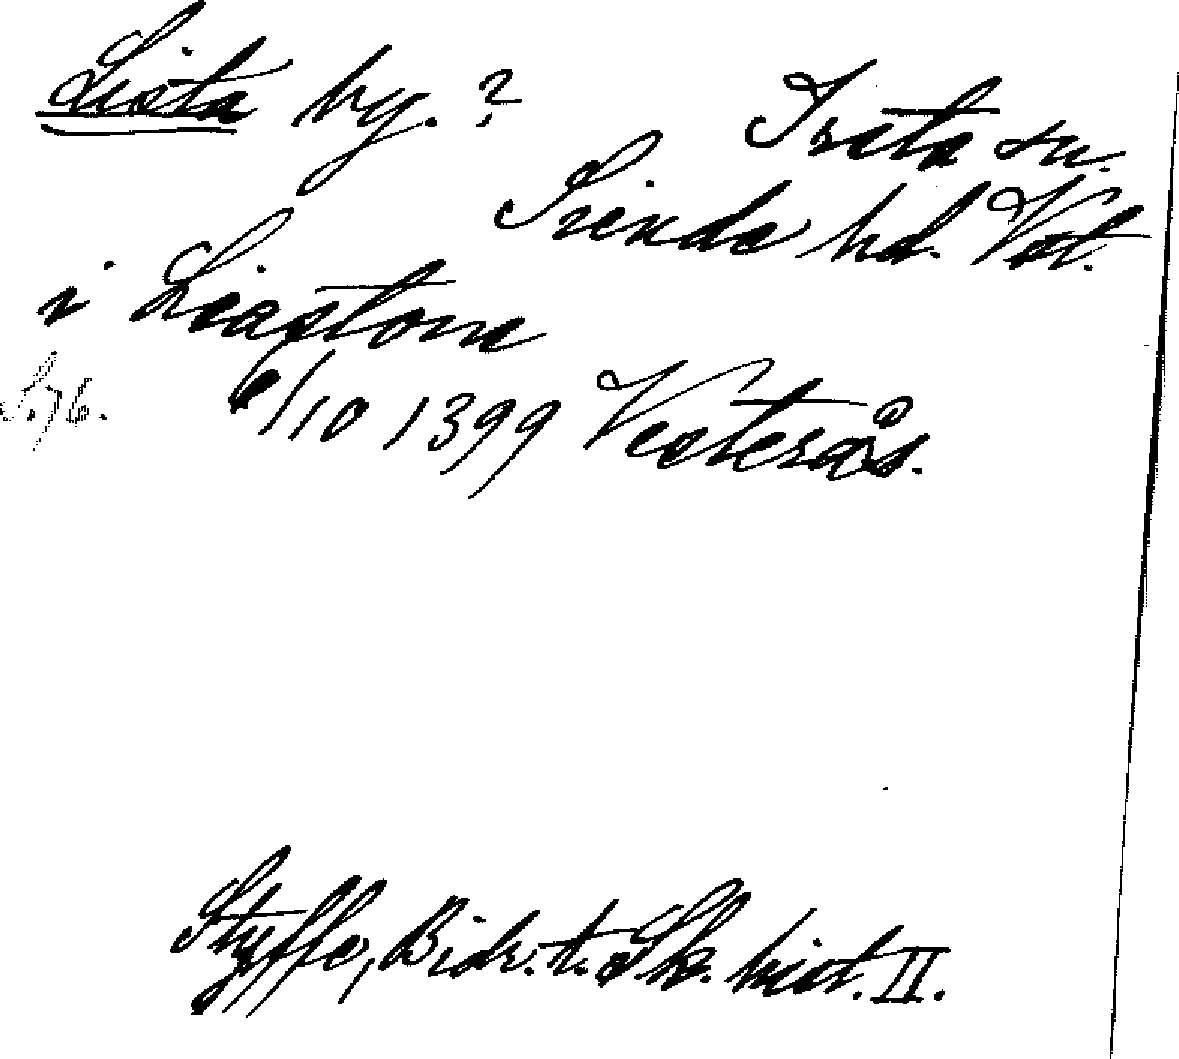 Lista by. ?
Irsta sn.
Siende hd. Vstm.
i Liastom
S. 76.
6/10 1399 Vesterås.
Styffe, Bidr. t. Sk. hist. II.